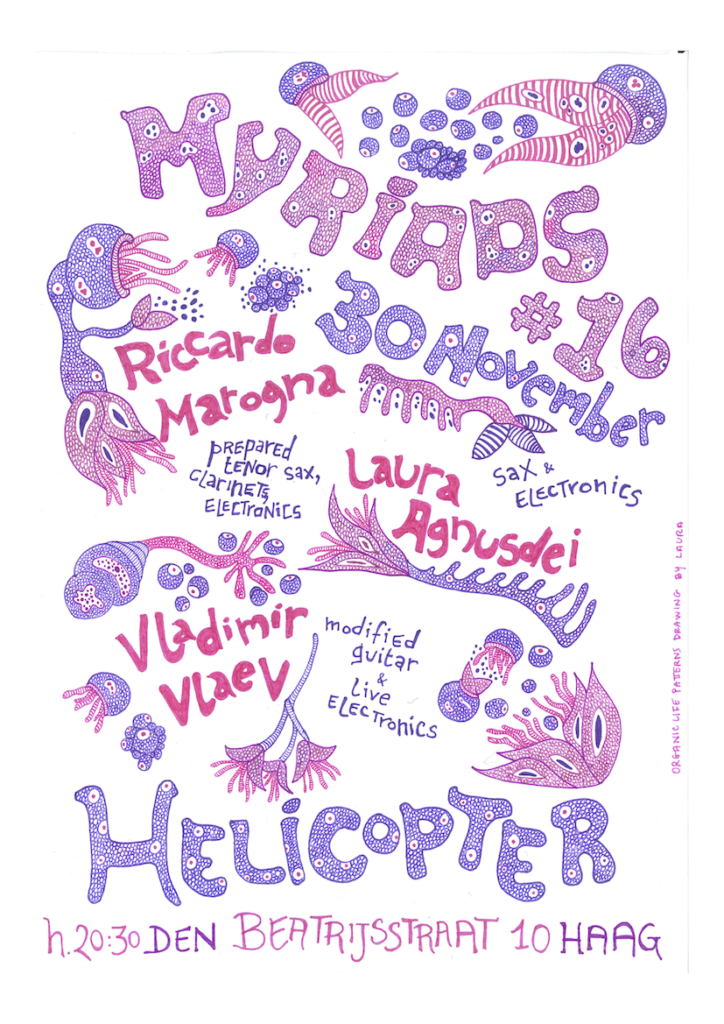 MYRiADS
#16
30 November
Riccardo
Marogna
prepared
tenor sax,
clarinets,
electronics
Laura
Agnusdei
sax &
electronics
Vladimir
Vlaev
modified
guitar
&
live
electronics
HELiCOPTER
h.20:30 DEN BEATRIJSSTRAAT 10 HAAG
ORGANIC LIFE PATTERNS DRAWING BY LAURA